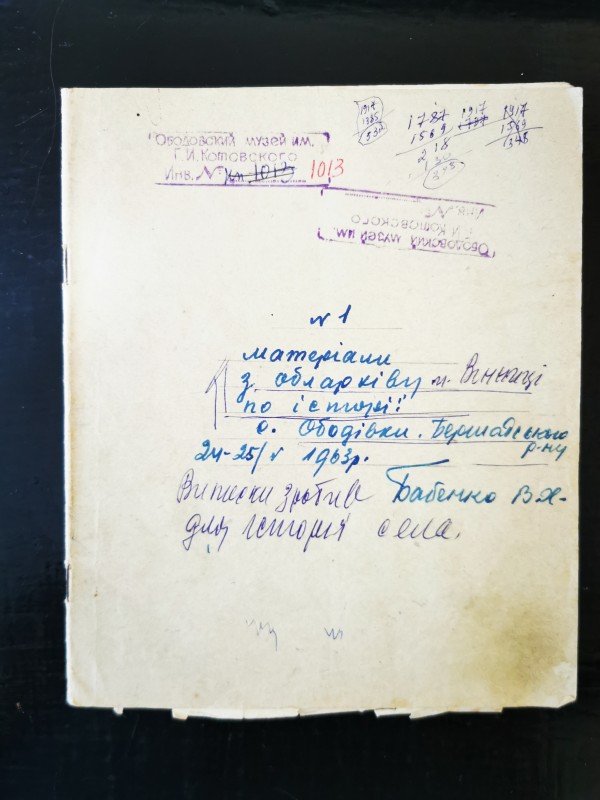 1917
1385
532
1787
1569
218
1917
1787
1917
1569
1348
Ободовский музей им.
Г. И. Котовского
Инв. № 1013 1013
Ободовский музей им.
Г. И. Котовского
Инв. №
№ 1
Матеріали
з облархіву м. Вінниці
по історії
с. Ободівки. Бершадського
р-ну
24-25/V 1963р.
Виписки зробив Бабенко В Я-
для історія села.